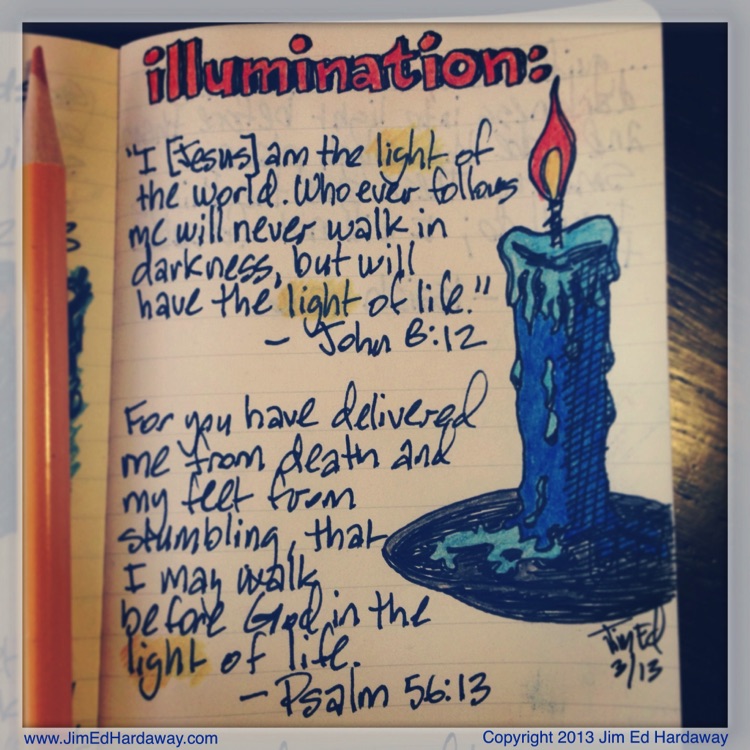 illumination:
"I [Jesus] am the light of
the world. Whoever follows
me will never walk in
darkness, but will
have the light of life."
- John 8:12
For you have delivered
me from death and
my feet from
stumbling, that
I may walk
before God in the
light of life.
- Psalm 56:13
Jim Ed
3/13
www.JimEdHardaway.com
Copyright 2013 Jim Ed Hardaway